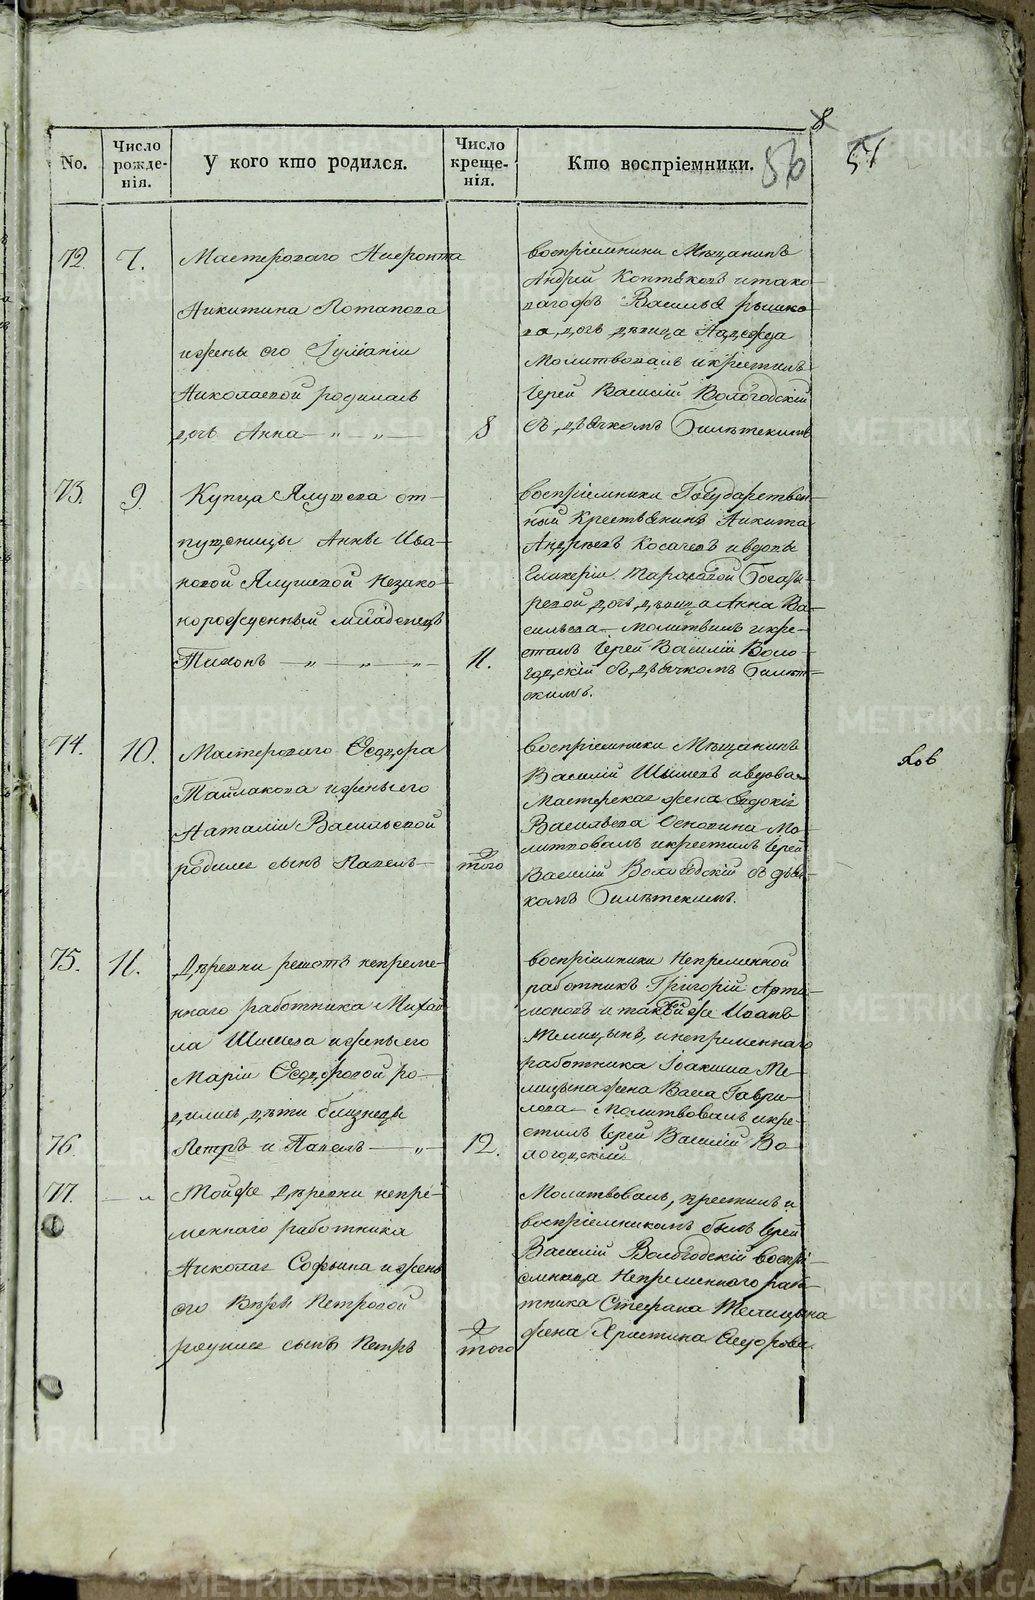 8
57
56
No.
Число рожде- нія.
У кого кто родился.
Число креще- нія.
Кто воспріемники.
72.
7.
Мастероваго Ниеронта
Никитина Потапова
и жены его Іуліаніи
Николаевой родилась
дочь Анна — „ — „ —
8
воспріемники Мѣщанинъ
Андрей Коптяковъ и тако
вагожъ Василья
ва, дочь дѣвица Надежда
Молитвовалъ и крестилъ
Іерей Василій Вологодскій
съ дьячкомъ
73.
9.
Купца Ялушева от-
пущеницы Анны Ива-
новой Ялушевой незако-
норожденный младенецъ
Тихонъ — „ — „ — „ -
11.
воспріемники Государствен-
ный Крестьянинъ Никита
Андреевъ Косачевъ и вдовы
Гликеріи Тарасовой
дочь дѣвица Анна Ва-
сильева Молитвилъ и кре-
стилъ Іерей Василій Воло-
годскій съ дьячкомъ
74.
10.
Мастероваго Ѳеодора
Тайлакова и жены его
Наталіи Васильевой
родился сынъ Павелъ —
того
воспріемники Мѣщанинъ
Василій и вдова
Мастерская жена Евдокія
Васильева Осокина Мо-
литвовалъ и крестилъ Іерей
Василій Вологодскій съ дьяч-
комъ
75.
11.
Деревни решетъ непреме-
ннаго работника Михай
ла Шишева и жены его
Маріи Ѳеодоровой ро-
дились дѣти близнецы
76.
Петръ и Павелъ — „ -
12.
воспріемники Непременной
работникъ Григорій Арта-
моновъ и таковойже Иванъ
Телицынъ, и непременнаго
работника Іоакима Те-
лицына жена Васса Гаври-
лова — Молитвовалъ и кре-
стилъ Іерей Василій Во-
логодскій
77.
— „
Тойже Деревни непре-
меннаго работника
Николая Софьина и жены
его Вѣры Петровой
родился сынъ Петръ
того
Молитвовалъ, крестилъ и
воспріемникомъ былъ Іерей
Василій Вологодскій воспрі-
емница Непременнаго рабо-
тника Стефана Телицына
жена Христина Сидорова.
METRIKI.GASO-URAL.RU